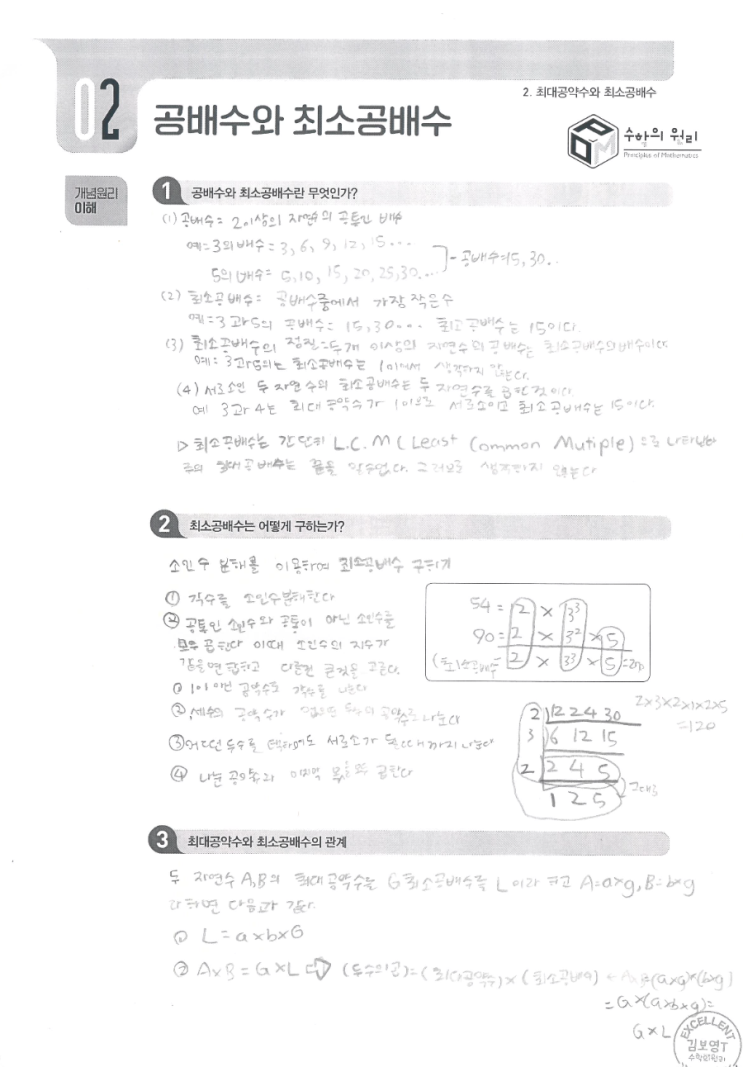 2. 최대공약수와 최소공배수
02 공배수와 최소공배수
수학의 원리
Principles of Mathematics
개념원리
이해
1 공배수와 최소공배수란 무엇인가?
(1) 공배수 = 2이상의 자연수의 공통인 배수
예=3의 배수 = 3, 6, 9, 12, 15 ...
5의 배수 = 5, 10, 15, 20, 25, 30... - 공배수 15, 30..
(2) 최소공배수 = 공배수중에서 가장 작은수
예=3과 5의 공배수 = 15, 30... 최고공배수는 15이다.
(3) 최소공배수의 성질 = 두개 이상의 자연수의 공배수는 최소공배수의 배수이다
예: 3과 5의 최소공배수는 1이에서 생각하지 않는다.
(4) 서로소인 두 자연수의 최소공배수는 두 자연수를 곱한것이다.
예 3과 4는 최대공약수가 1이므로 서로소이고 최소공배수는 15이다.
▷ 최소공배수는 간단히 L.C.M (Least Common Mutiple)으로 나타낸다
공배수는 끝을 알수없다. 그러므로 생각하지 않는다
2 최소공배수는 어떻게 구하는가?
소인수 분해를 이용하여 최소공배수 구하기
① 각수를 소인수분해한다
② 공통인 소인수와 공통이 아닌 소인수를
모두 곱한다 이때 소인수의 지수가
같으면 곱하고 다르면 큰것을 고른다.
54 = 2 × 3³
90 = 2 × 3² × 5
(최소공배수 = 2 × 3³ × 5 =
① 1이 아닌 공약수로 각수를 나눈다
② 세수의 공약수가 없으면 두수의 공약수로 나눈다
③ 어떠한 두수를 택하여도 서로소가 될때까지 나눈다
④ 나눈 공약수와 마지막 몫을 모두 곱한다
2 ) 12 24 30
3 ) 6 12 15
2 ) 2 4 5
1 2 5
그대로
2×3×2×1×2×5
=120
3 최대공약수와 최소공배수의 관계
두 자연수 A,B의 최대공약수는 G 최소공배수를 L 이라 하고 A=a×g, B=b×g
라 하면 다음과 같다.
① L = a×b×G
② A×B = G×L ⇨ (두수의 곱) = (최대공약수) × (최소공배수) (a×g)×(b×g)
= G×(a×b×g) =
G×L
EXCELLENT
김보영T
수학의원리